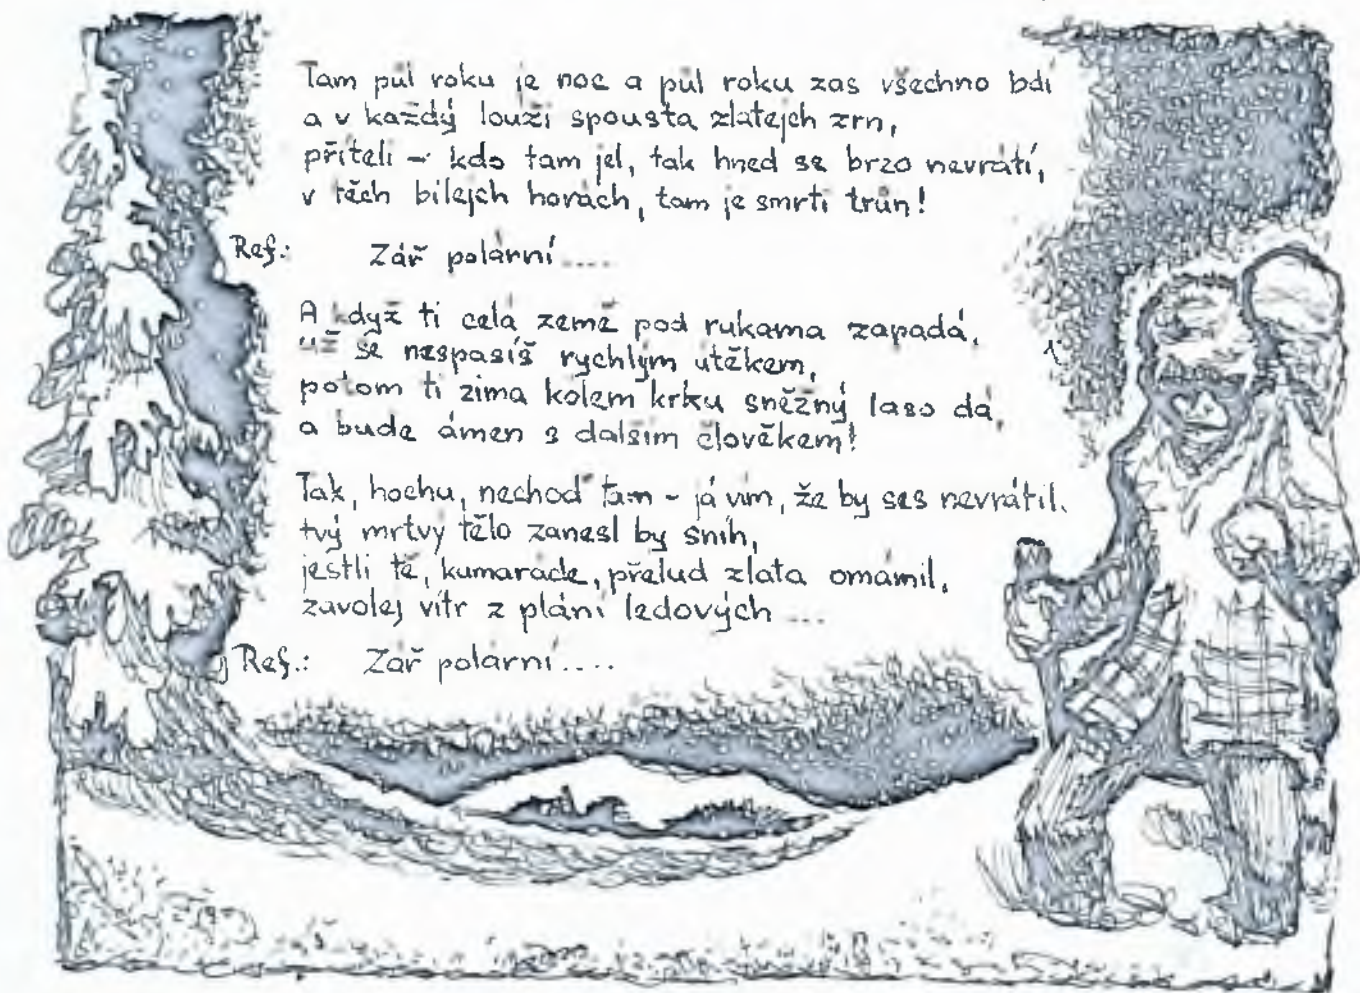 Tam půl roku je noc a půl roku zas všechno bdí
a v každý louži spousta zlatejch zrn,
příteli - kdo tam jel, tak hned se brzo nevrátí,
v těch bílejch horách, tam je smrti trůn!
Ref.: Zář polární....
A když ti celá země pod rukama zapadá,
už se nespasíš rychlým útěkem,
potom ti zima kolem krku sněžný laso dá,
a bude ámen s dalším člověkem!
Tak, hochu, nechoď tam - já vím, že by ses nevrátil.
tvý mrtvý tělo zanesl by sníh,
jestli tě, kumaráde, přelud zlata omámil,
zavolej vítr z plání ledových ...
Ref.: Zář polární....